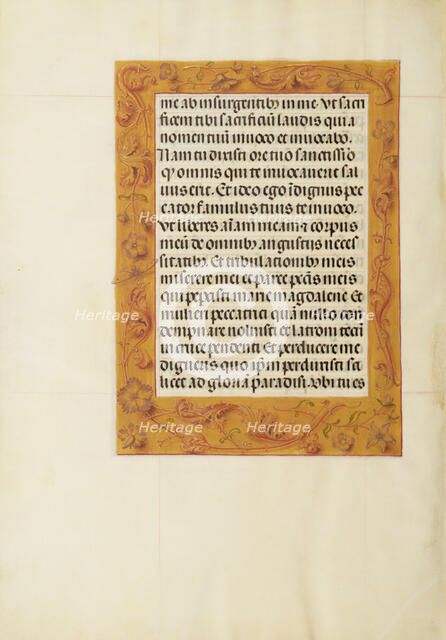 me ab insurgentibꝫ in me. Vt sacri
ficem tibi sacrificiū laudis quia
nomen tuū inuoco et inuocabo.
Nam tu dixisti ore tuo sanctissīo
qꝫ omnis qui te inuocauerit sal
uus erit. Et ideo ego īdignus pec
cator famulus tuus te inuoco.
Vt liberes aīam meam et corpus
meū de omnibꝫ angustiis neces
sitatibꝫ. Et tribulationibꝫ meis
miserere mei et parce pctīs meis
qui pepcisti marie magdalene et
mulieri peccatrici quā nullo con
dempnare uoluisti et latroni tecū
in cruce pendenti Et perducere me
digneris quo ip̄m perduxisti sci
licet ad gloriā paradisi. vbi tu es
Heritage
Heritage
Heritage
Heritage
Heritage
Heritage